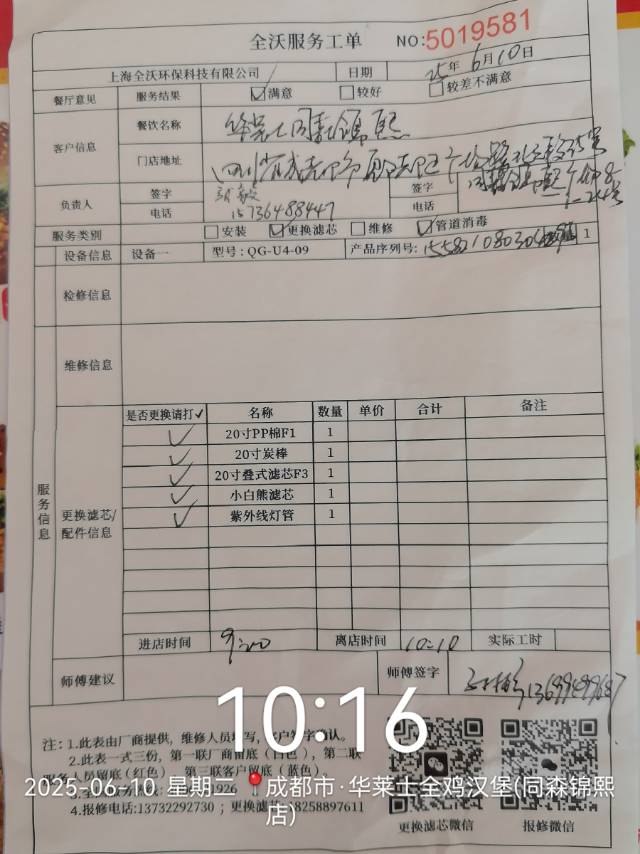 全沃服务工单 NO:5019581
上海全沃环保科技有限公司 日期 25年6月10日
餐厅意见 服务结果 ☑满意 □较好 □较差不满意
客户信息 餐饮名称 华莱士同森锦熙
门店地址
负责人 签字 签字
电话 15736488447 电话
服务类别 □安装 ☑更换滤芯 □维修 ☑管道消毒
设备信息 设备一 型号:QG-U4-09 产品序列号: 1
检修信息
维修信息
服务信息
更换滤芯/配件信息
是否更换请打✓ 名称 数量 单价 合计 备注
✓ 20寸PP棉F1 1
✓ 20寸炭棒 1
✓ 20寸叠式滤芯F3 1
✓ 小白熊滤芯 1
✓ 紫外线灯管 1
进店时间 9:00 离店时间 10:10 实际工时
师傅建议 师傅签字 13699499687
注:1.此表由厂商提供,维修人员填写,客户签字确认。
2.此表一式三份,第一联厂商留底(白色),第二联
服务人员留底(红色) 第三联客户留底(蓝色)
4.报修电话:13732292730 ;更换滤芯:18258897611
更换滤芯微信 报修微信
10:16
2025-06-10 星期二 📍成都市·华莱士全鸡汉堡(同森锦熙店)